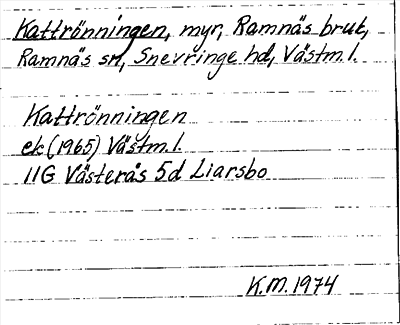 Kattrönningen, myr, Ramnäs bruk,
Ramnäs sn, Snevringe hd, Västm.l.
Kattrönningen
ek (1965) Västm.l.
11G Västerås 5d Liarsbo
K.M. 1974